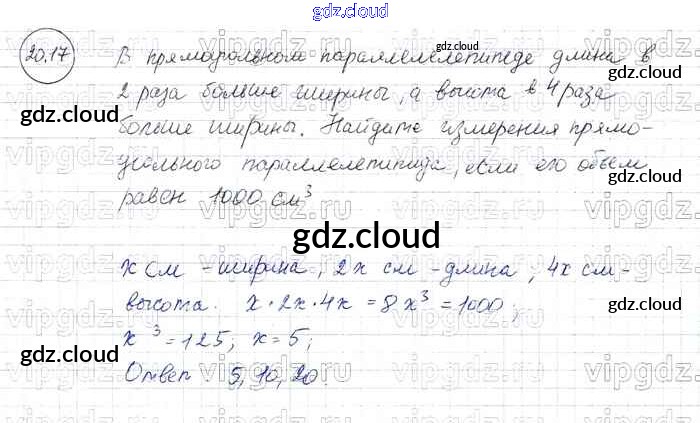 gdz.cloud
20.17
В прямоугольном параллелепипеде длина в
2 раза больше ширины, а высота в 4 раза
больше ширины. Найдите измерения прямо-
угольного параллелепипеда, если его объем
равен 1000 см³
gdz.cloud
x см - ширина, 2x см - длина, 4x см -
высота. x · 2x · 4x = 8x³ = 1000;
x³ = 125; x = 5;
Ответ: 5, 10, 20.
gdz.cloud
gdz.cloud
gdz.cloud
gdz.cloud
gdz.cloud
gdz.cloud